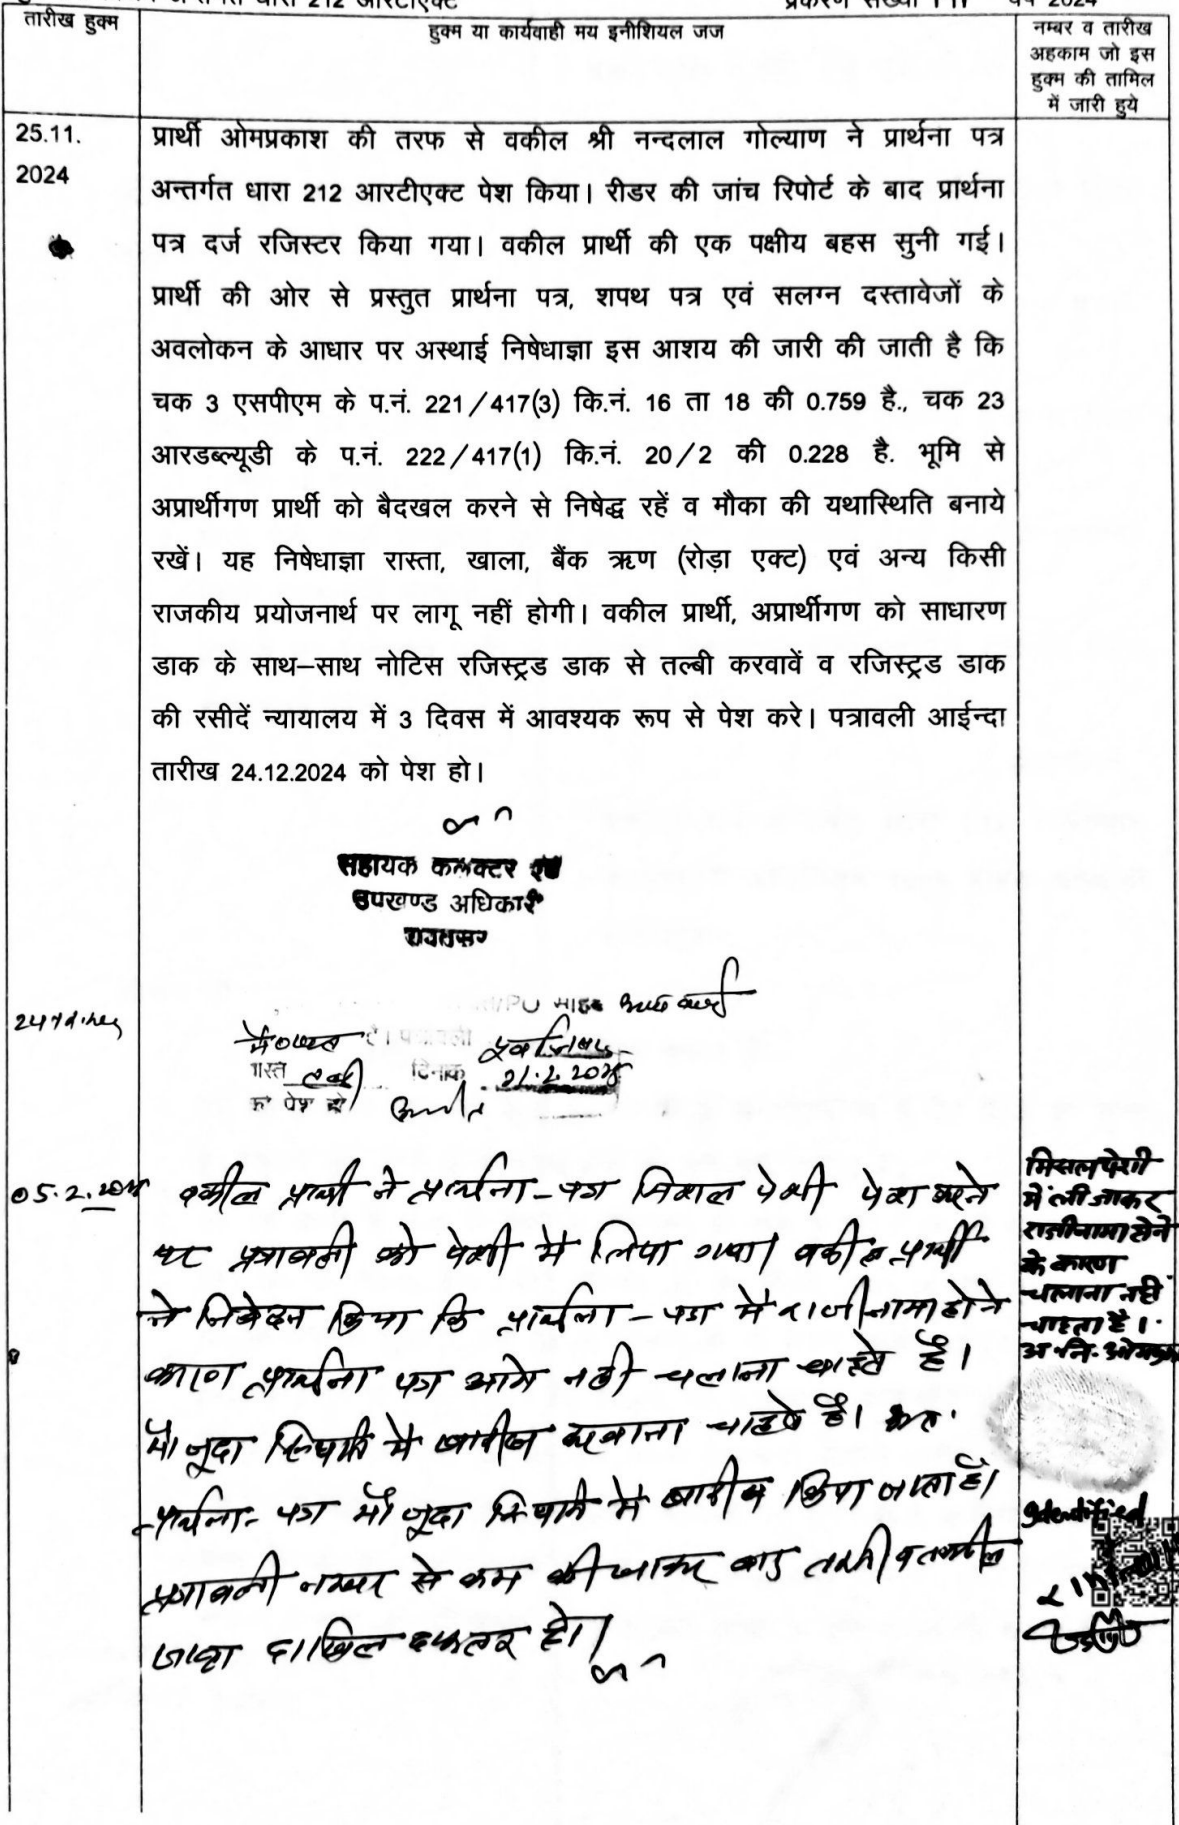 धारा 212 आरटीएक्ट
प्रकरण संख्या
2024
तारीख हुक्म
हुक्म या कार्यवाही मय इनीशियल जज
नम्बर व तारीख
अहकाम जो इस
हुक्म की तामिल
में जारी हुये
25.11.
2024
प्रार्थी ओमप्रकाश की तरफ से वकील श्री नन्दलाल गोल्याण ने प्रार्थना पत्र
अन्तर्गत धारा 212 आरटीएक्ट पेश किया। रीडर की जांच रिपोर्ट के बाद प्रार्थना
पत्र दर्ज रजिस्टर किया गया। वकील प्रार्थी की एक पक्षीय बहस सुनी गई।
प्रार्थी की ओर से प्रस्तुत प्रार्थना पत्र, शपथ पत्र एवं सलग्न दस्तावेजों के
अवलोकन के आधार पर अस्थाई निषेधाज्ञा इस आशय की जारी की जाती है कि
चक 3 एसपीएम के प.नं. 221/417(3) कि.नं. 16 ता 18 की 0.759 है., चक 23
आरडब्ल्यूडी के प.नं. 222/417(1) कि.नं. 20/2 की 0.228 है. भूमि से
अप्रार्थीगण प्रार्थी को बैदखल करने से निषेद्ध रहें व मौका की यथास्थिति बनाये
रखें। यह निषेधाज्ञा रास्ता, खाला, बैंक ऋण (रोड़ा एक्ट) एवं अन्य किसी
राजकीय प्रयोजनार्थ पर लागू नहीं होगी। वकील प्रार्थी, अप्रार्थीगण को साधारण
डाक के साथ–साथ नोटिस रजिस्ट्रड डाक से तल्बी करवावें व रजिस्ट्रड डाक
की रसीदें न्यायालय में 3 दिवस में आवश्यक रूप से पेश करे। पत्रावली आईन्दा
तारीख 24.12.2024 को पेश हो।
सहायक कलक्टर एवं
उपखण्ड अधिकारी
रावतसर
दिनांक 21.2.2025
को पेश हो
05.2.2025 वकील प्रार्थी ने प्रार्थना-पत्र मिसल पेशी पेश करने
पर पत्रावली को पेशी में लिया गया। वकील प्रार्थी
ने निवेदन किया कि प्रार्थना-पत्र में राजीनामा होने
कारण प्रार्थना पत्र आगे नही चलाना चाहते है।
मौजूदा स्थिति में खारीज करवाना चाहते है। अतः
प्रार्थना-पत्र मौजूदा स्थिति में खारीज किया जाता है।
पत्रावली नम्बर से कम की जाकर बाद तकमील
जाब्ता दाखिल दफ्तर हो।
मिसल पेशी
में ली जाकर
राजीनामा होने
के कारण
चलाना नही
चाहता है।
अ.नि. ओमप्रकाश
Identified